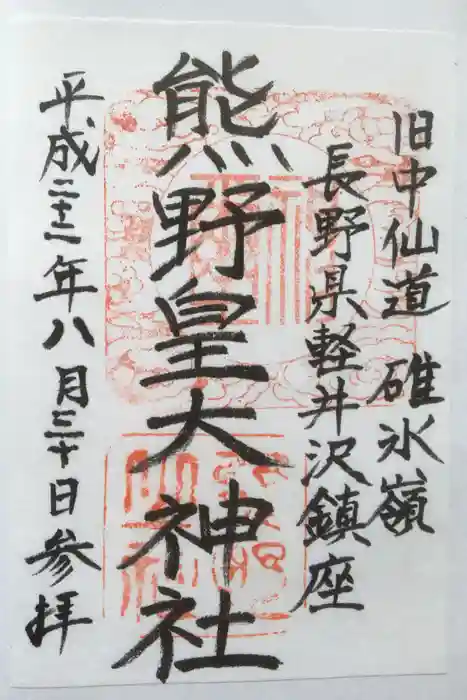 旧中仙道 碓氷嶺
長野県軽井沢鎮座
熊野皇大神社
平成二十二年八月三十日参拝